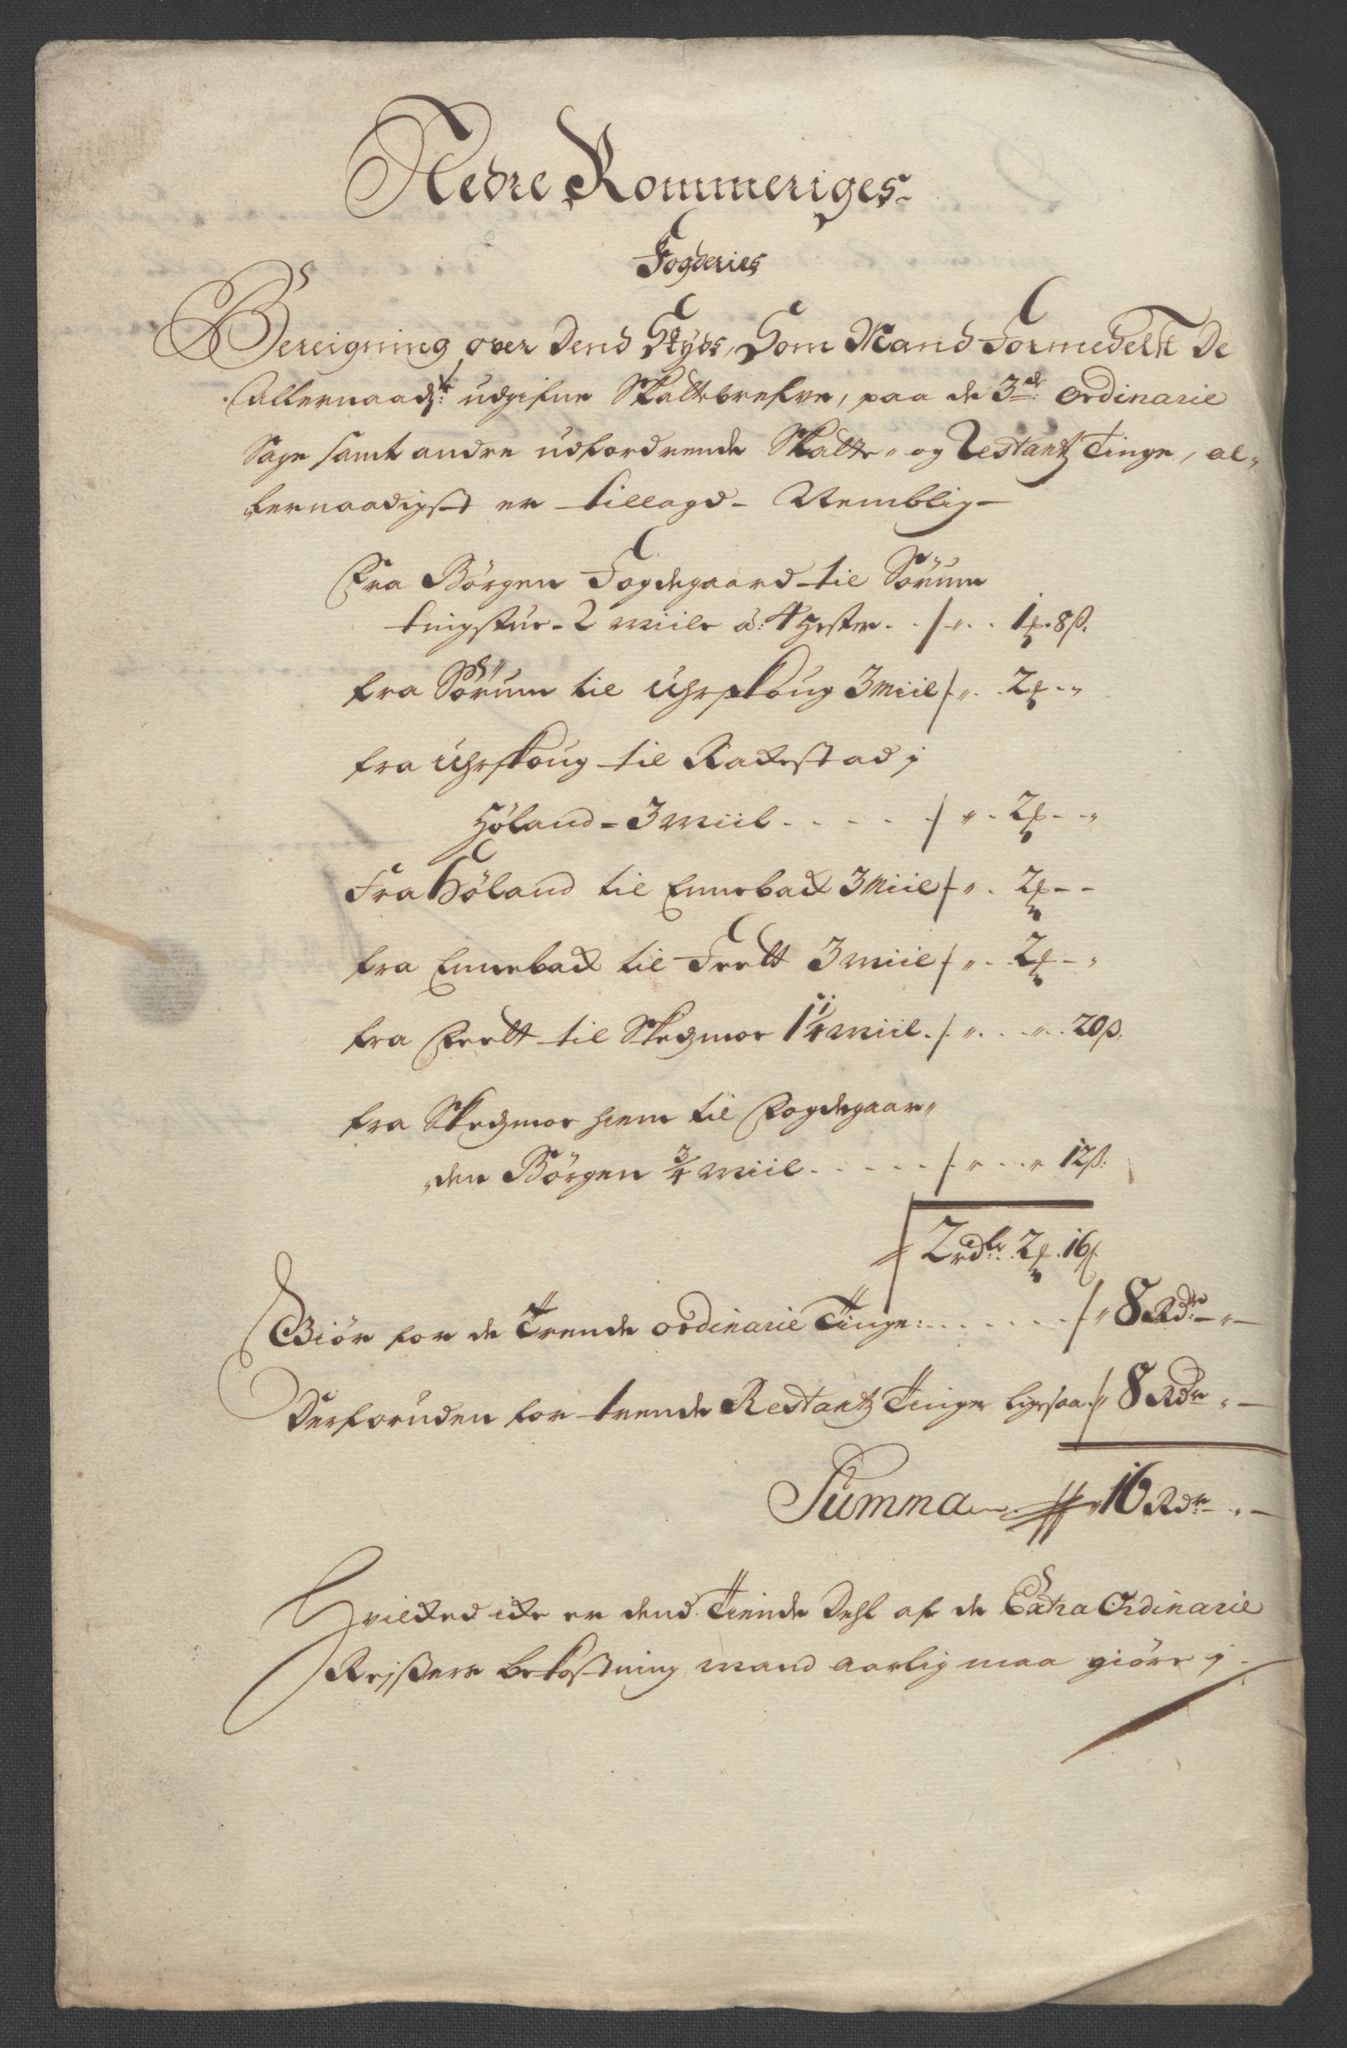 Nedre Rommeriges
Fogderies
Bereigning over dend Skyds, Som Mand Formedelst De
Allernaadst: udgifne Skattebrefve, paa de 3de: Ordinarie
Sage samt andre udfordrende Skatte- og Restantz Tinge, al-
lernaadigst er tillagd - Nemblig -
Fra Börgen Fogdegaard til Sörum
tingstue - 2 miile á: 4 Hester . . / „ . . 1 ʒ. 8 ß.
fra Sörum til Uhrskoug 3 miil / „ . . 2 ʒ - „
fra Uhrskoug til Rakestad j
Höland - 3 miil . . . . . / „ . . 2 ʒ - „
Fra Höland til Ennebak 3 Miil / „ . 2 ʒ - -
fra Ennebak til Feett 3 miil / „ . . 2 ʒ - „
fra Feett til Skedzmoe 1 1/4 miil . / „ . . . „ . 20 ß.
fra Skedzmoe hiem til Fogdegaar-
den Börgen 3/4 miil . . . . . / „ . . „ 12 ß:
2 rdlr 2 ʒ. 16 ß
Giör for de Trende ordinarie Tinge: . . . . . . / „ 8 Rdr - „ -
Derforuden for trende Restantz Tinge ligesaa / „ 8 Rdr „ -
Summa „ 16 Rdr - „ -
Hvilked icke er dend Tiende Dehl af de Extra Ordinarie
Rejsers bekostning mand aarlig maa giöre j.